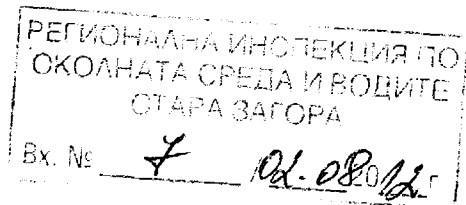 РЕГИОНАЛНА ИНСПЕКЦИЯ ПО
ОКОЛНАТА СРЕДА И ВОДИТЕ
СТАРА ЗАГОРА
Вх. № 7 / 02.08.2012 г.